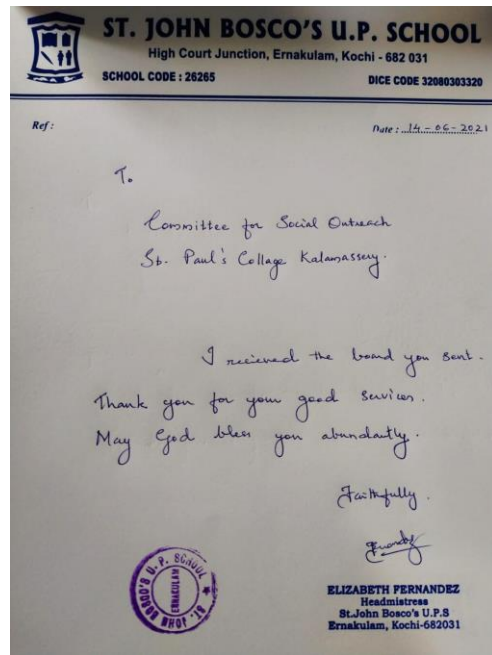 ST. JOHN BOSCO'S U.P. SCHOOL
High Court Junction, Ernakulam, Kochi - 682 031
SCHOOL CODE : 26265
DICE CODE 32080303320
Ref :
Date : 14-06-2021
To
Committee for Social Outreach
St. Paul's Collage Kalamassery.
I recieved the board you sent.
Thank you for your good services.
May God bless you abundantly.
Faithfully.
ELIZABETH FERNANDEZ
Headmistress
St.John Bosco's U.P.S
Ernakulam, Kochi-682031
ST. JOHN BOSCO'S U. P. SCHOOL
ERNAKULAM